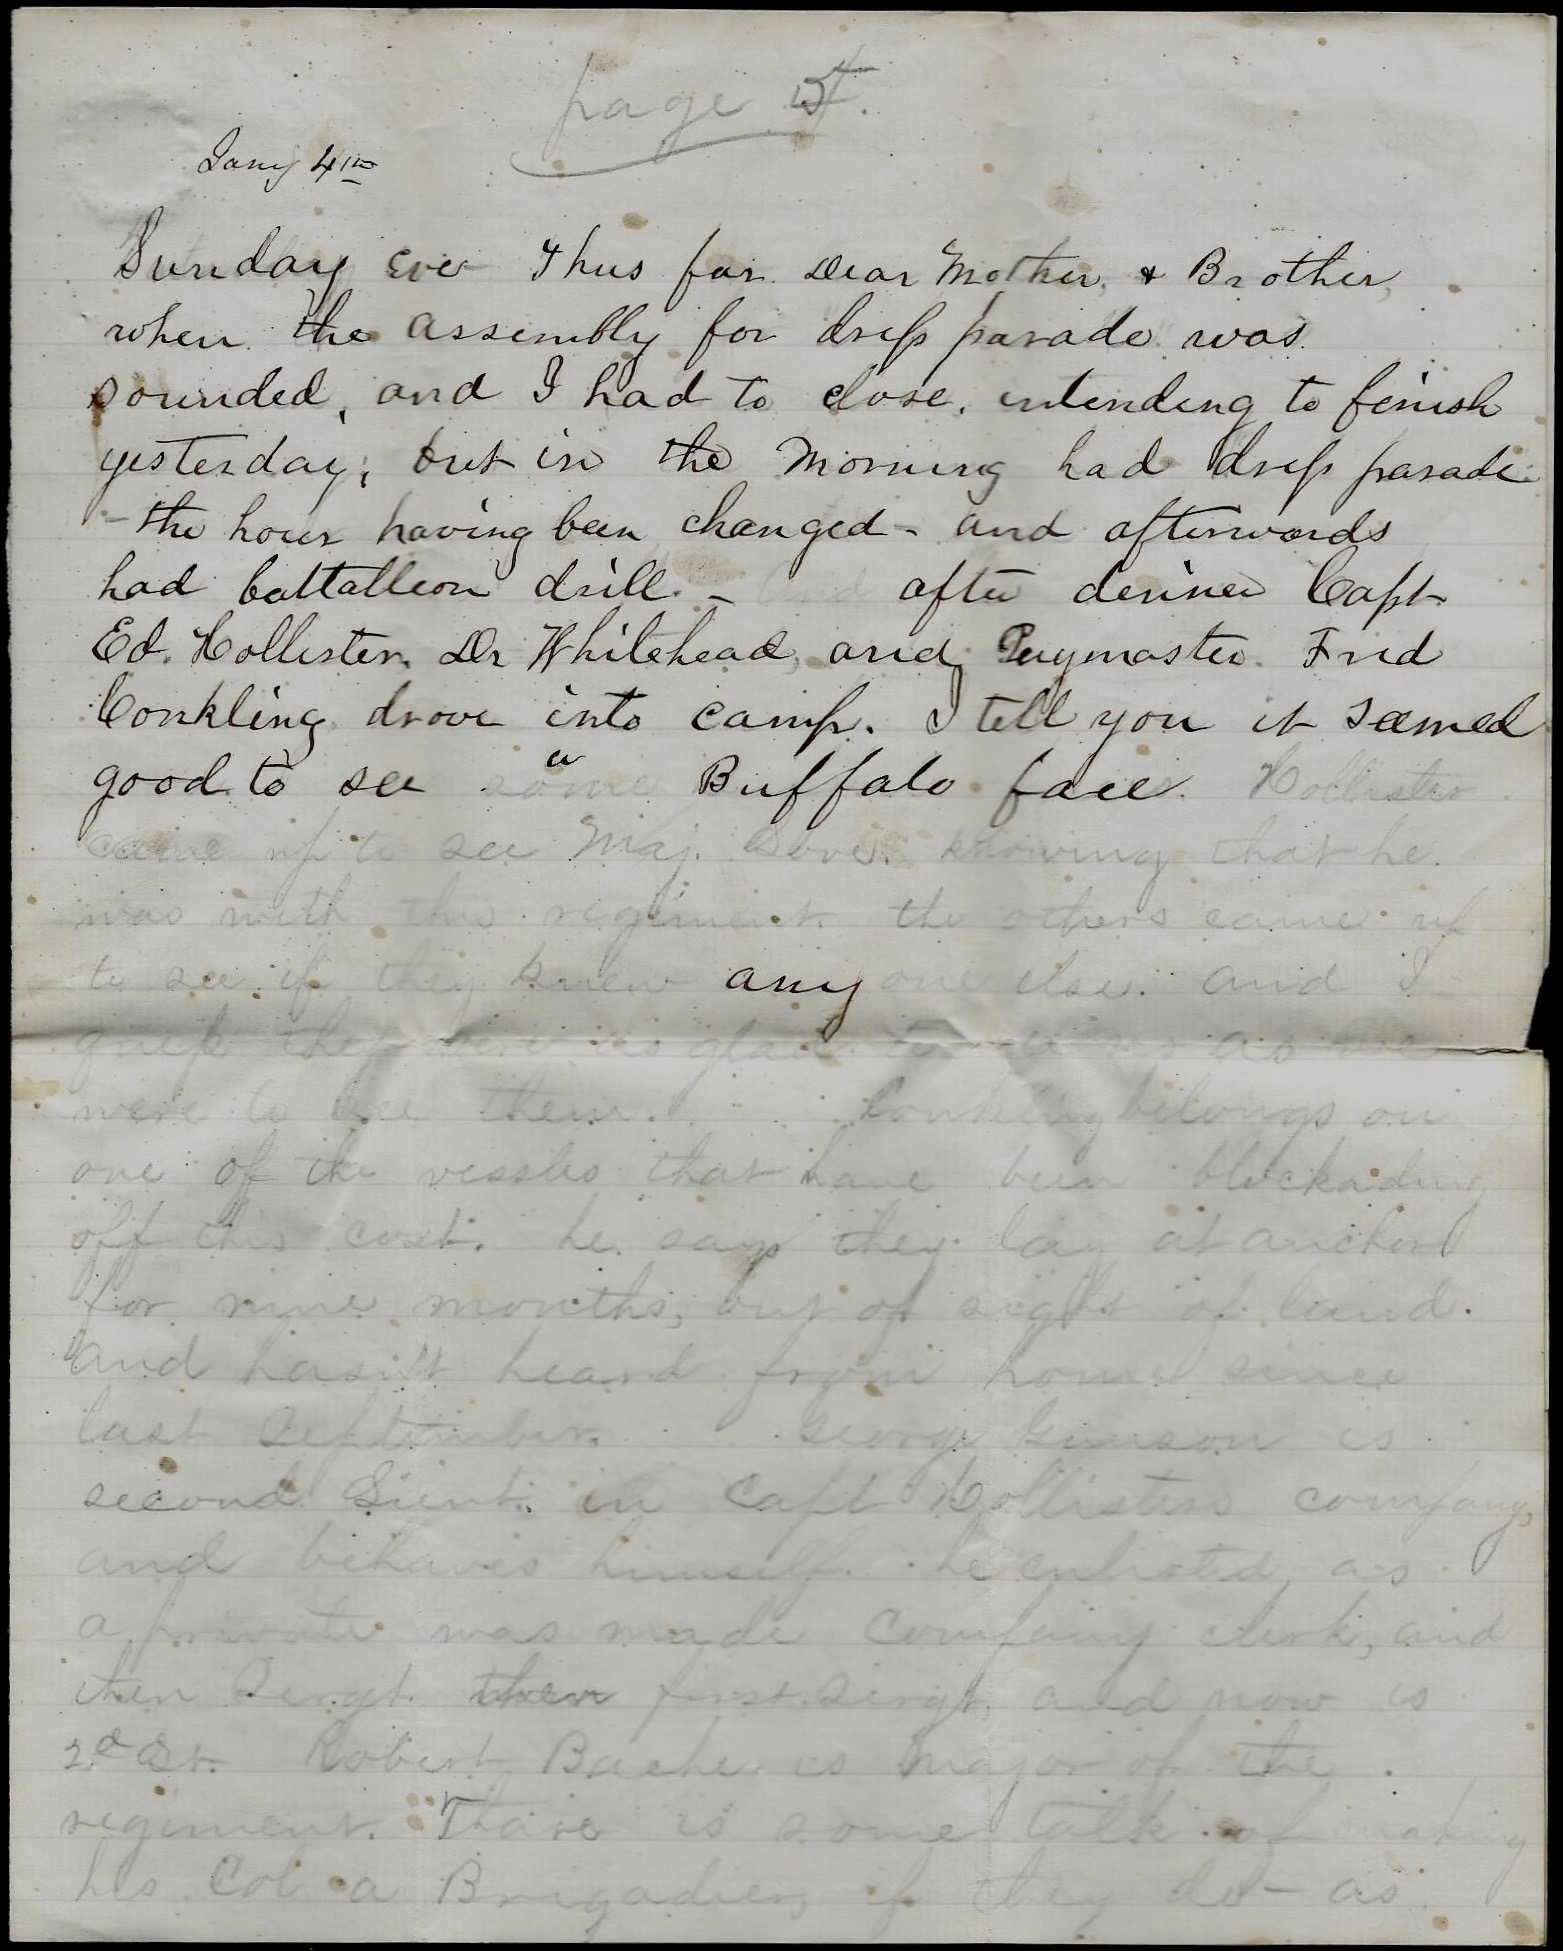 page 5
Jany 4th
Sunday Eve Thus far Dear Mother, & Brother,
when the assembly for dress parade was
sounded, and I had to close, intending to finish
yesterday; but in the morning had dress parade
- the hour having been changed - and afterwards
had battallion drill. - And after dinner Capt
Ed. Hollister, Dr Whitehead, and Paymaster Fred
Conkling drove into camp. I tell you it seemed
good to see a Buffalo face. Hollister
came up to see Maj. Love. knowing that he
was with this regiment. the others came up
to see if they knew any one else. and I
guess they were as glad to see us as we
were to see them. Conkling belongs on
one of the vessles that have been blockading
off this cost. he says they lay at anchor
for nine months, out of sight of land.
and hasn't heard from home since
last September. George is
second Lieut. in Capt Hollisters company,
and behaves himself. he enlisted as
a private was made company clerk, and
then Sergt. then first Sergt, and now is
2d Lt. Robert Bache is Major of the
regiment. Thare is some talk of making
his Col a Brigadier, if they do - as